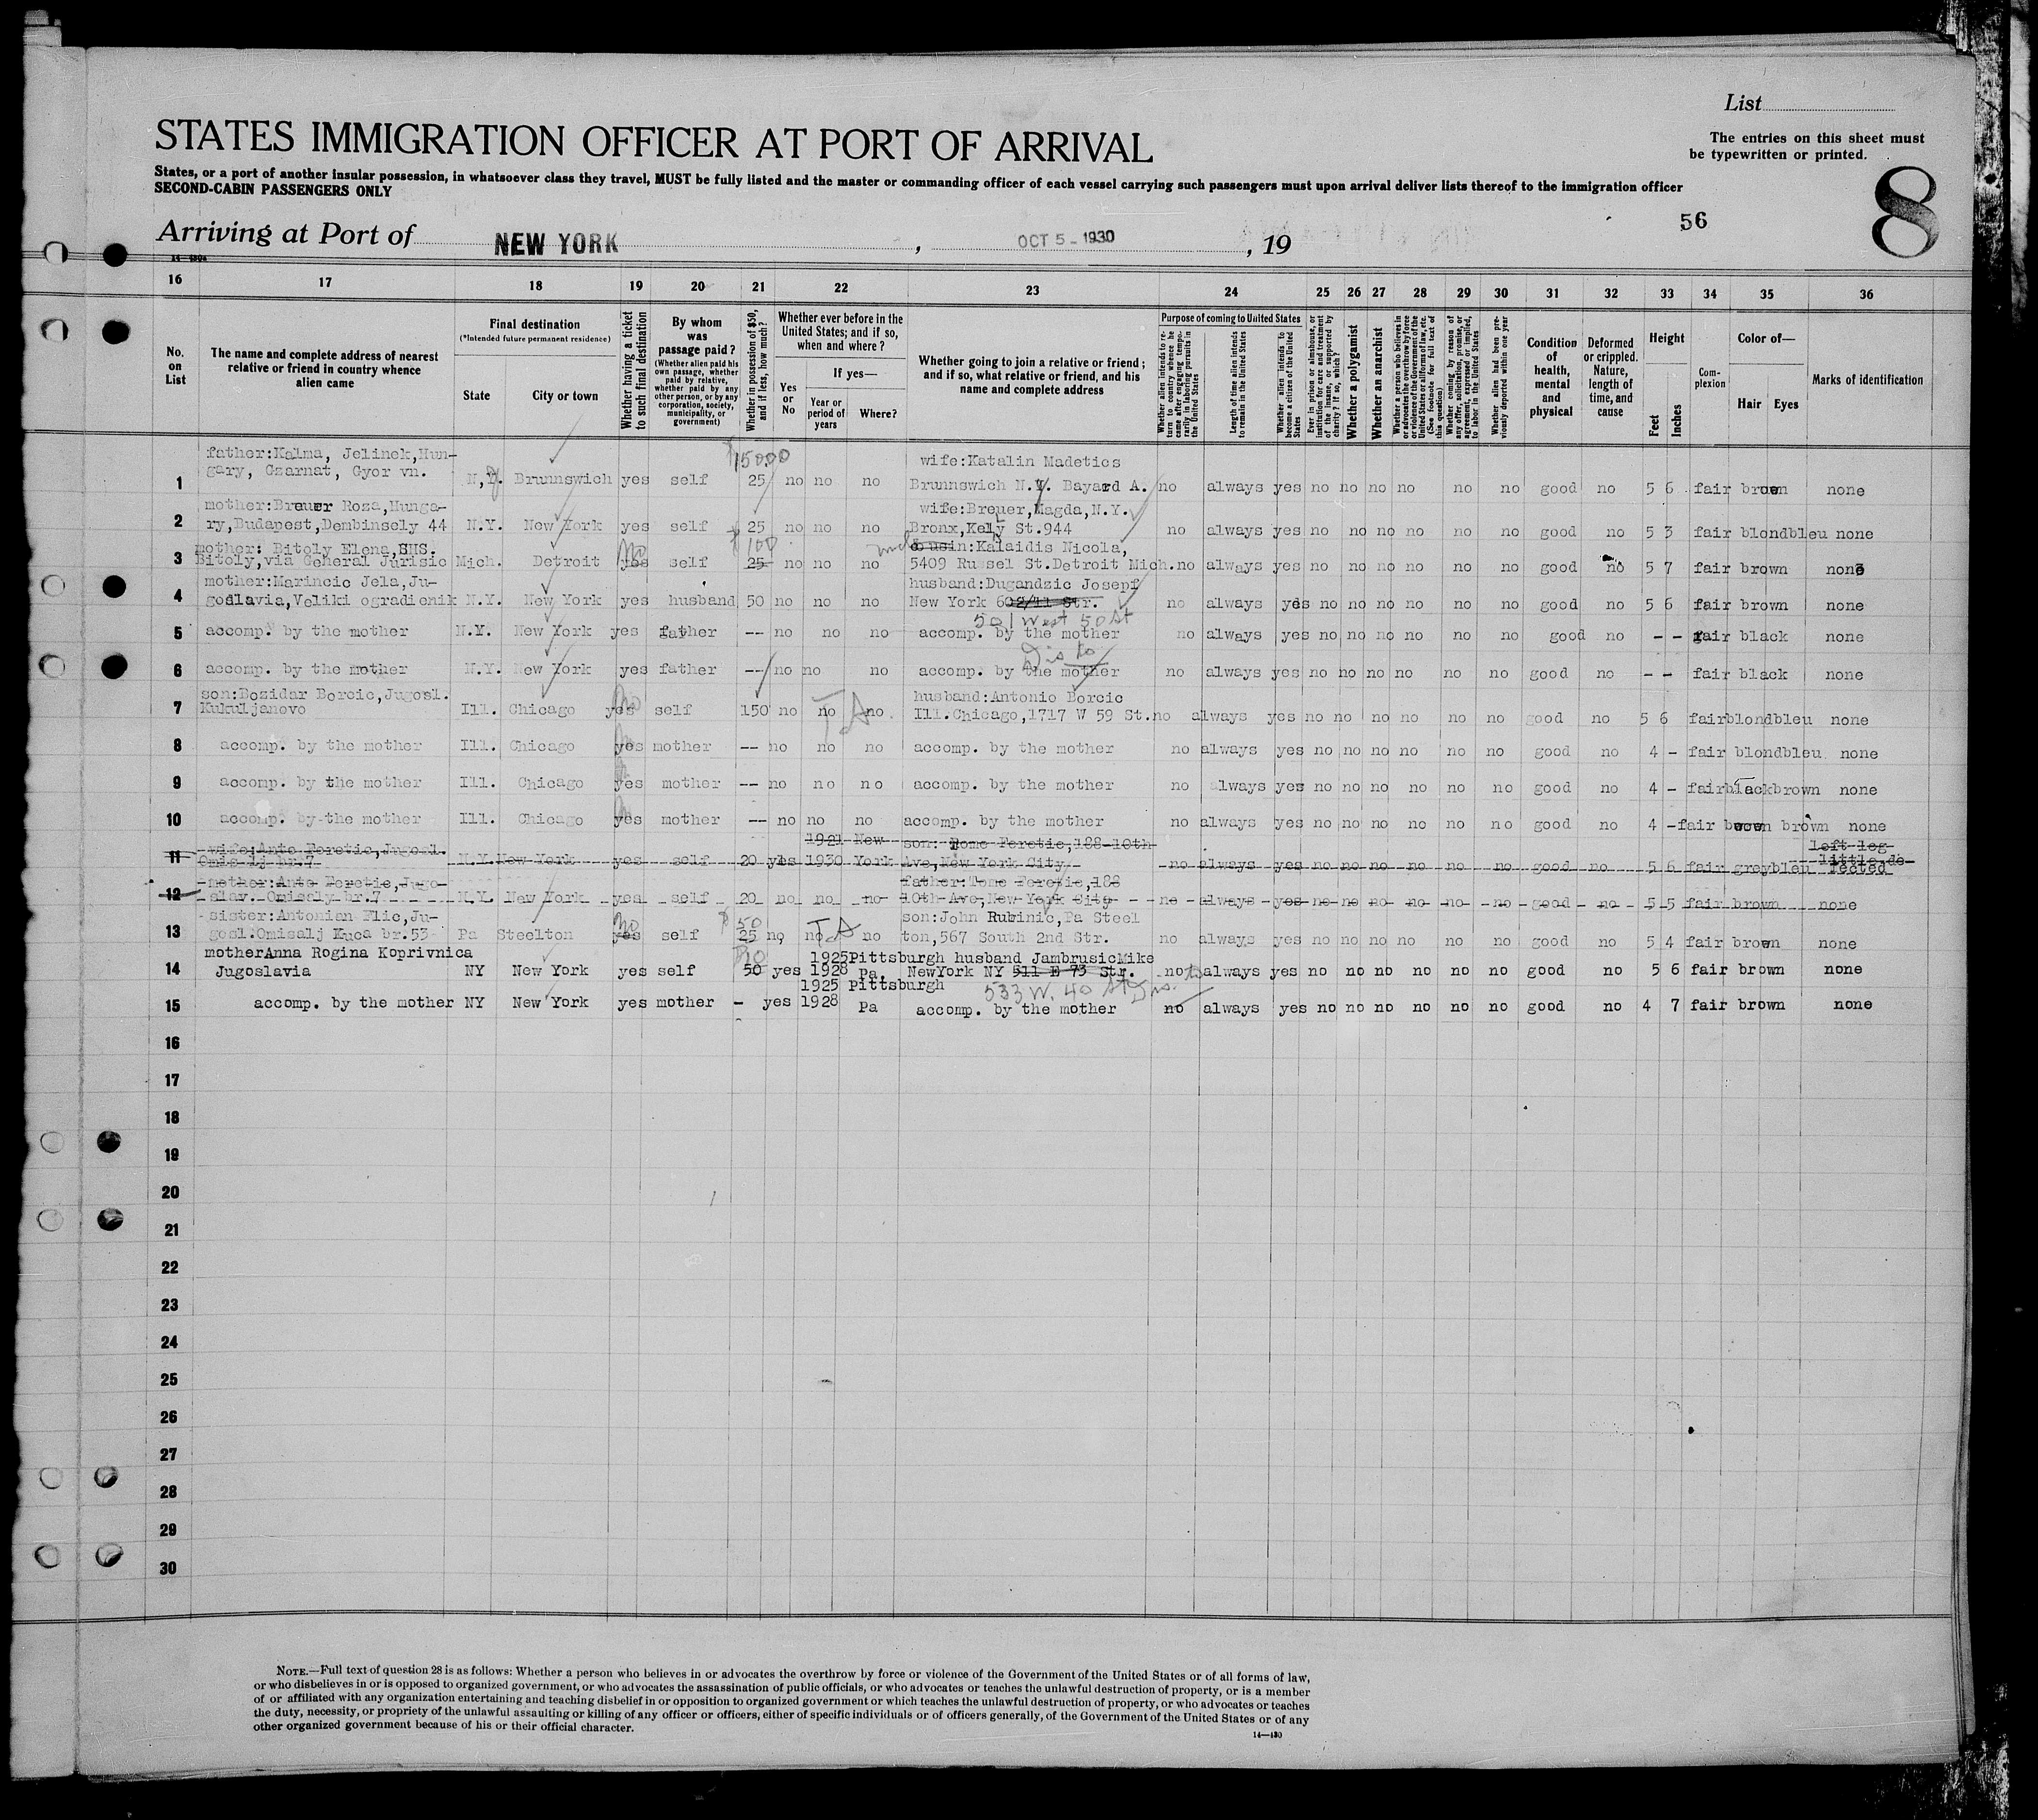 List
STATES IMMIGRATION OFFICER AT PORT OF ARRIVAL
The entries on this sheet must
be typewritten or printed.
States, or a port of another insular possession, in whatsoever class they travel, MUST be fully listed and the master or commanding officer of each vessel carrying such passengers must upon arrival deliver lists thereof to the immigration officer
SECOND-CABIN PASSENGERS ONLY
56
8
Arriving at Port of NEW YORK , OCT 5 - 1930 , 19
16 17 18 19 20 21 22 23 24 25 26 27 28 29 30 31 32 33 34 35 36
No. on List
The name and complete address of nearest relative or friend in country whence alien came
Final destination
(*Intended future permanent residence)
State
City or town
Whether having a ticket to such final destination
By whom was passage paid?
(Whether alien paid his own passage, whether paid by relative, whether paid by any other person, or by any corporation, society, municipality, or government)
Whether in possession of $50, and if less, how much?
Whether ever before in the United States; and if so, when and where?
Yes or No
If yes—
Year or period of years
Where?
Whether going to join a relative or friend; and if so, what relative or friend, and his name and complete address
Purpose of coming to United States
Whether alien intends to return to country whence he came after engaging temporarily in laboring pursuits in the United States
Length of time alien intends to remain in the United States
Whether alien intends to become a citizen of the United States
Ever in prison or almshouse, or institution for care and treatment of the insane, or supported by charity? If so, which?
Whether a polygamist
Whether an anarchist
Whether a person who believes in or advocates the overthrow by force or violence of the Government of the United States or all forms of law, etc. (See footnote for full text of this question)
Whether coming by reason of any offer, solicitation, promise, or agreement, expressed or implied, to labor in the United States
Whether alien had been previously deported within one year
Condition of health, mental and physical
Deformed or crippled. Nature, length of time, and cause
Height
Feet
Inches
Complexion
Color of—
Hair
Eyes
Marks of identification
father:Kalma, Jelinek,Hun- 15000 wife:Katalin Madetics
gary, Csarnat, Gyor vn.
1 Brunnswich yes self 25 no no no Brunnswich N.Y. Bayard A. no always yes no no no no no no good no 5 6 fair brown none
mother:Breuer Roza,Hunga- wife:Breuer,Magda,N.Y.
2 ry,Budapest,Dembinsely 44 N.Y. New York yes self 25 no no no Bronx,Kely St.944 no always yes no no no no no no good no 5 3 fair blondbleu none
mother: Bitoly Elena,SHS. No $100 :Kalaidis Nicola,
3 Bitoly,via General Jurisic Mich. Detroit yes self 25 no no no 5409 Russel St.Detroit Mich.no always yes no no no no no no good no 5 7 fair brown none
mother:Marincic Jela,Ju- husband:Dugandzic Josepf
4 goslavia,Veliki ogradienik N.Y. New York yes husband 50 no no no New York 602/11 Str. no always yes no no no no no no good no 5 6 fair brown none
501 West 50 St
5 accomp. by the mother N.Y. New York yes father -- no no no accomp. by the mother no always yes no no no no no no good no - - fair black none
Dis to
6 accomp. by the mother N.Y. New York yes father -- no no no accomp. by the mother no always yes no no no no no no good no - - fair black none
son:Bozidar Borcic,Jugosl. No husband:Antonio Borcic
7 Kukuljanovo Ill. Chicago yes self 150 no no no Ill.Chicago,1717 W 59 St.no always yes no no no no no no good no 5 6 fairblondbleu none
8 accomp. by the mother Ill. Chicago yes mother -- no no no accomp. by the mother no always yes no no no no no no good no 4 - fair blondbleu none
9 accomp. by the mother Ill. Chicago yes mother -- no no no accomp. by the mother no always yes no no no no no no good no 4 - fairblackbrown none
10 accomp. by the mother Ill. Chicago yes mother -- no no no accomp. by the mother no always yes no no no no no no good no 4 -fair brown brown none
wife:Ante Feretic,Jugosl. 1921 New son: Tome Feretic,188-10th left leg
11 Omis lj br.7 N.Y.New York yes self 20 yes 1930 York Ave,New York City no always yes no no no no no no good no 5 6 fair greybleu little de-
fected
mother:Ante Feretic,Jugo- father:Tome Feretic,188
12 slav. Omisaly br.7 N.Y. New York yes self 20 no no no 10th Ave,New York City no always yes no no no no no no good no 5 5 fair brown none
sister:Antonian Flic,Ju- No $50 son:John Rubinic,Pa Steel
13 gosl.Omisalj Kuca br.53 Pa Steelton yes self 25 no no no ton,567 South 2nd Str. no always yes no no no no no no good no 5 4 fair brown none
motherAnna Rogina Koprivnica 1925Pittsburgh husband JambrusicMike
14 Jugoslavia NY New York yes self 50 yes 1928 Pa. NewYork NY 511 E 73 Str. no always yes no no no no no no good no 5 6 fair brown none
1925 Pittsburgh 533 W. 40 St
15 accomp. by the mother NY New York yes mother - yes 1928 Pa accomp. by the mother no always yes no no no no no no good no 4 7 fair brown none
16
17
18
19
20
21
22
23
24
25
26
27
28
29
30
NOTE.—Full text of question 28 is as follows: Whether a person who believes in or advocates the overthrow by force or violence of the Government of the United States or of all forms of law,
or who disbelieves in or is opposed to organized government, or who advocates the assassination of public officials, or who advocates or teaches the unlawful destruction of property, or is a member
of or affiliated with any organization entertaining and teaching disbelief in or opposition to organized government or which teaches the unlawful destruction of property, or who advocates or teaches
the duty, necessity, or propriety of the unlawful assaulting or killing of any officer or officers, either of specific individuals or of officers generally, of the Government of the United States or of any
other organized government because of his or their official character.
14—430